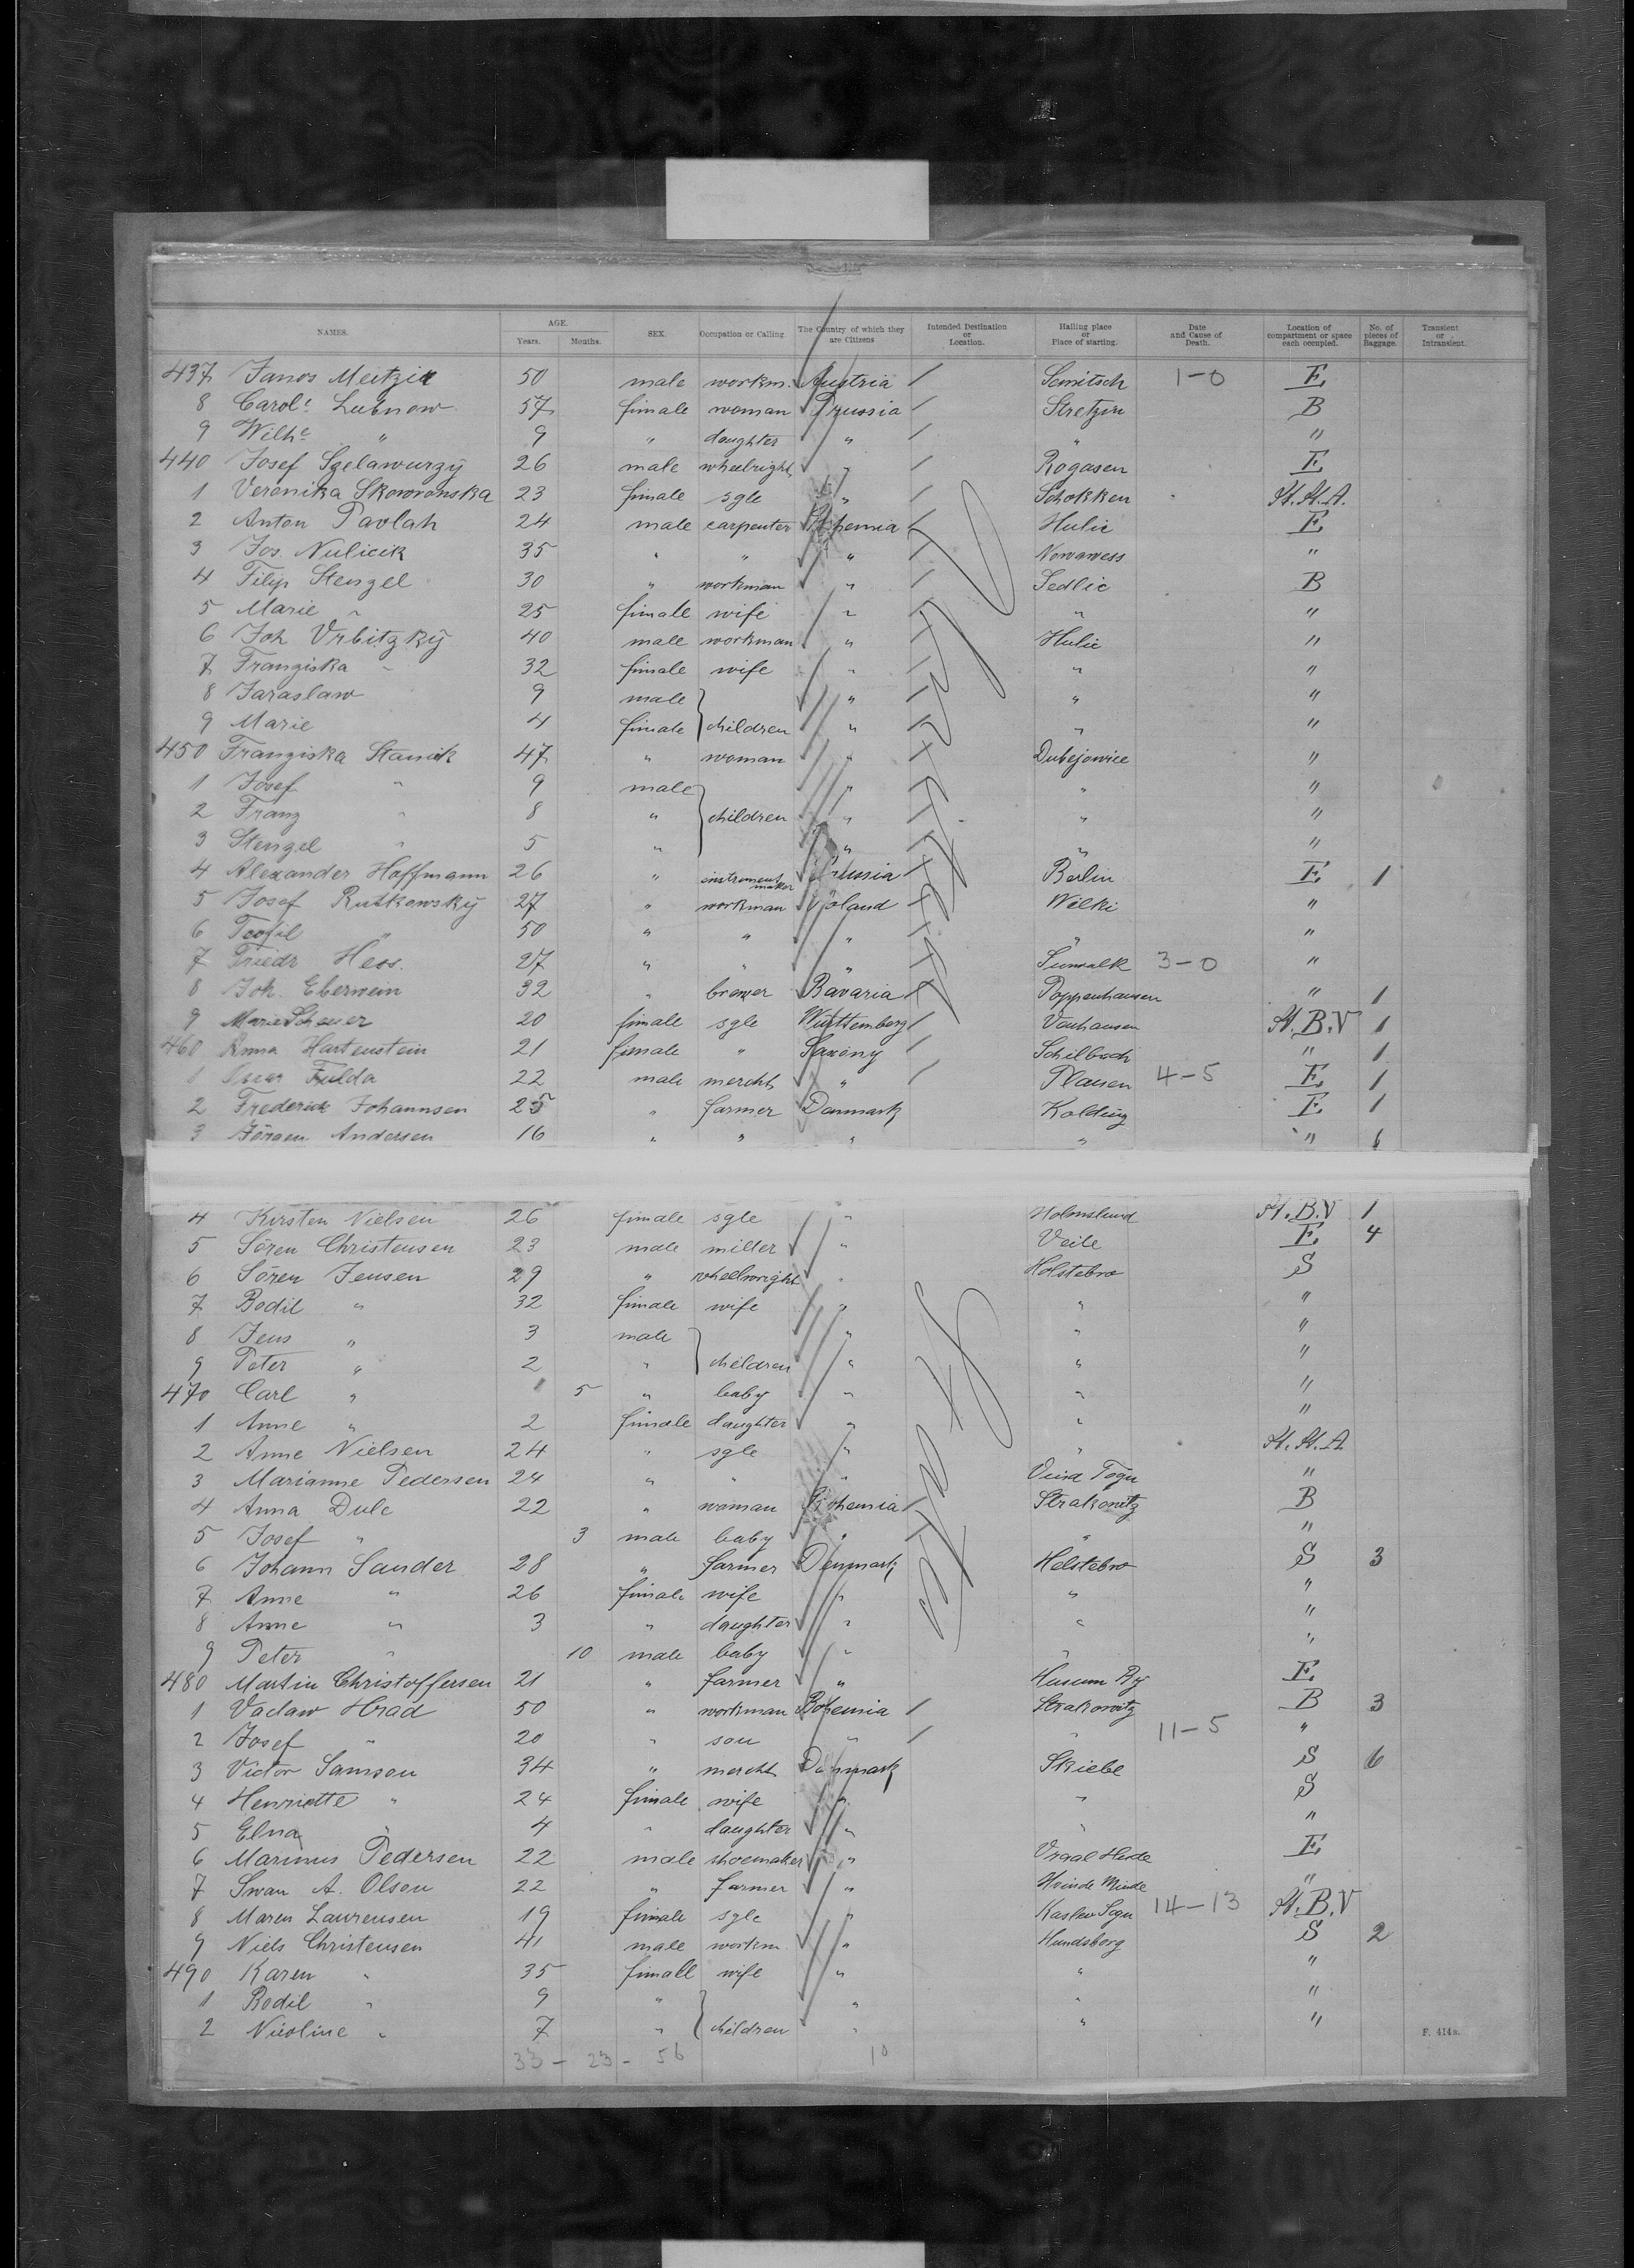 NAMES. AGE. Years. Months. SEX. Occupation or Calling. The Country of which they are Citizens Intended Destination or Location. Hailing place or Place of starting. Date and Cause of Death. Location of compartment or space each occupied. No. of pieces of Baggage. Transient or Intransient.
437 Janos Meitzik 50 male workm. Austria / Semitsch 1-0 E
8 Carol. Lubnow 57 fimale woman Prussia / Stretzin B
9 Wilhe " 9 " daughter " / " "
440 Josef Szelawurzÿ 26 male wheelright " / Rogasen E
1 Veronika Skowronska 23 fimale sgle " / Schokken St. St. A.
2 Anton Pavlah 24 male carpenter Bohemia / Hulic E
3 Jos. Nulicik 35 " " " / Nowawess "
4 Filip Stengel 30 " workman " / Sedlic B
5 Marie " 25 fimale wife " / " "
6 Joh Vrbitzkÿ 40 male workman " / Hulic "
7 Franziska " 32 fimale wife " / " "
8 Jaraslaw 9 male " / " "
9 Marie 4 fimale children " / " "
450 Franziska Stanick 47 " woman " / Dubejowice "
1 Josef " 9 male " / " "
2 Franz " 8 " children " / " "
3 Stengel " 5 " " / " "
4 Alexander Hoffmann 26 " instrument maker Prussia / Berlin E 1
5 Josef Rutkowskÿ 27 " workman Poland / Wilki "
6 Teofil " 50 " " " / " "
7 Friedr Hess. 27 " " " / Suwalk 3-0 "
8 Joh. Eberwein 32 " brewer Bavaria / Poppenhausen " 1
9 Marie Scheuer 20 fimale sgle Württemberg / Vauhausen St. B. V 1
460 Anna Hartenstein 21 fimale " Saxony / Schilbach " 1
1 Fulda 22 male mercht " / Plauen 4-5 E 1
2 Frederick Johannsen 25 " farmer Danmark Kolding E 1
3 Jörgen Andersen 16 " " " " "
4 Kirsten Nielsen 26 fimale sgle " Holmslund St. B. V 1
5 Sören Christensen 23 male miller " Veile E 4
6 Sören Jensen 29 " wheelwright " Holstebro S
7 Bodil " 32 fimale wife " " "
8 Jens " 3 male " " "
9 Peter " 2 " children " " "
470 Carl " 5 " baby " " "
1 Anne " 2 fimale daughter " " "
2 Anne Nielsen 24 " sgle " " St. St. A
3 Marianne Pedersen 24 " " " "
4 Anna Dule 22 " woman Bohemia / Strakonitz B
5 Josef " 3 male baby " / " "
6 Johann Sander 28 " farmer Denmark Holstebro S 3
7 Anne " 26 fimale wife " " "
8 Anne " 3 " daughter " " "
9 Peter " 10 male baby " " "
480 Martin Christoffersen 21 " farmer " Husum By E
1 Vaclaw Hrad 50 " workman Bohemia / Strakonitz B 3
2 Josef " 20 " son " / " 11-5 "
3 Victor Samson 34 " mercht Danmark Skiebe S 6
4 Henriette " 24 fimale wife " " S
5 Elna " 4 " daughter " " "
6 Marinus Pedersen 22 male shoemaker " E
7 Swan A. Olson 22 " farmer " "
8 Maren Laurensen 19 fimale sgle " 14-13 St. B. V
9 Niels Christensen 41 male workm " Hundsborg S 2
490 Karen " 35 fimall wife " " "
1 Bodil " 9 " " " "
2 Nicoline " 7 " children " " "
F. 414a.
33 - 23 - 56 10